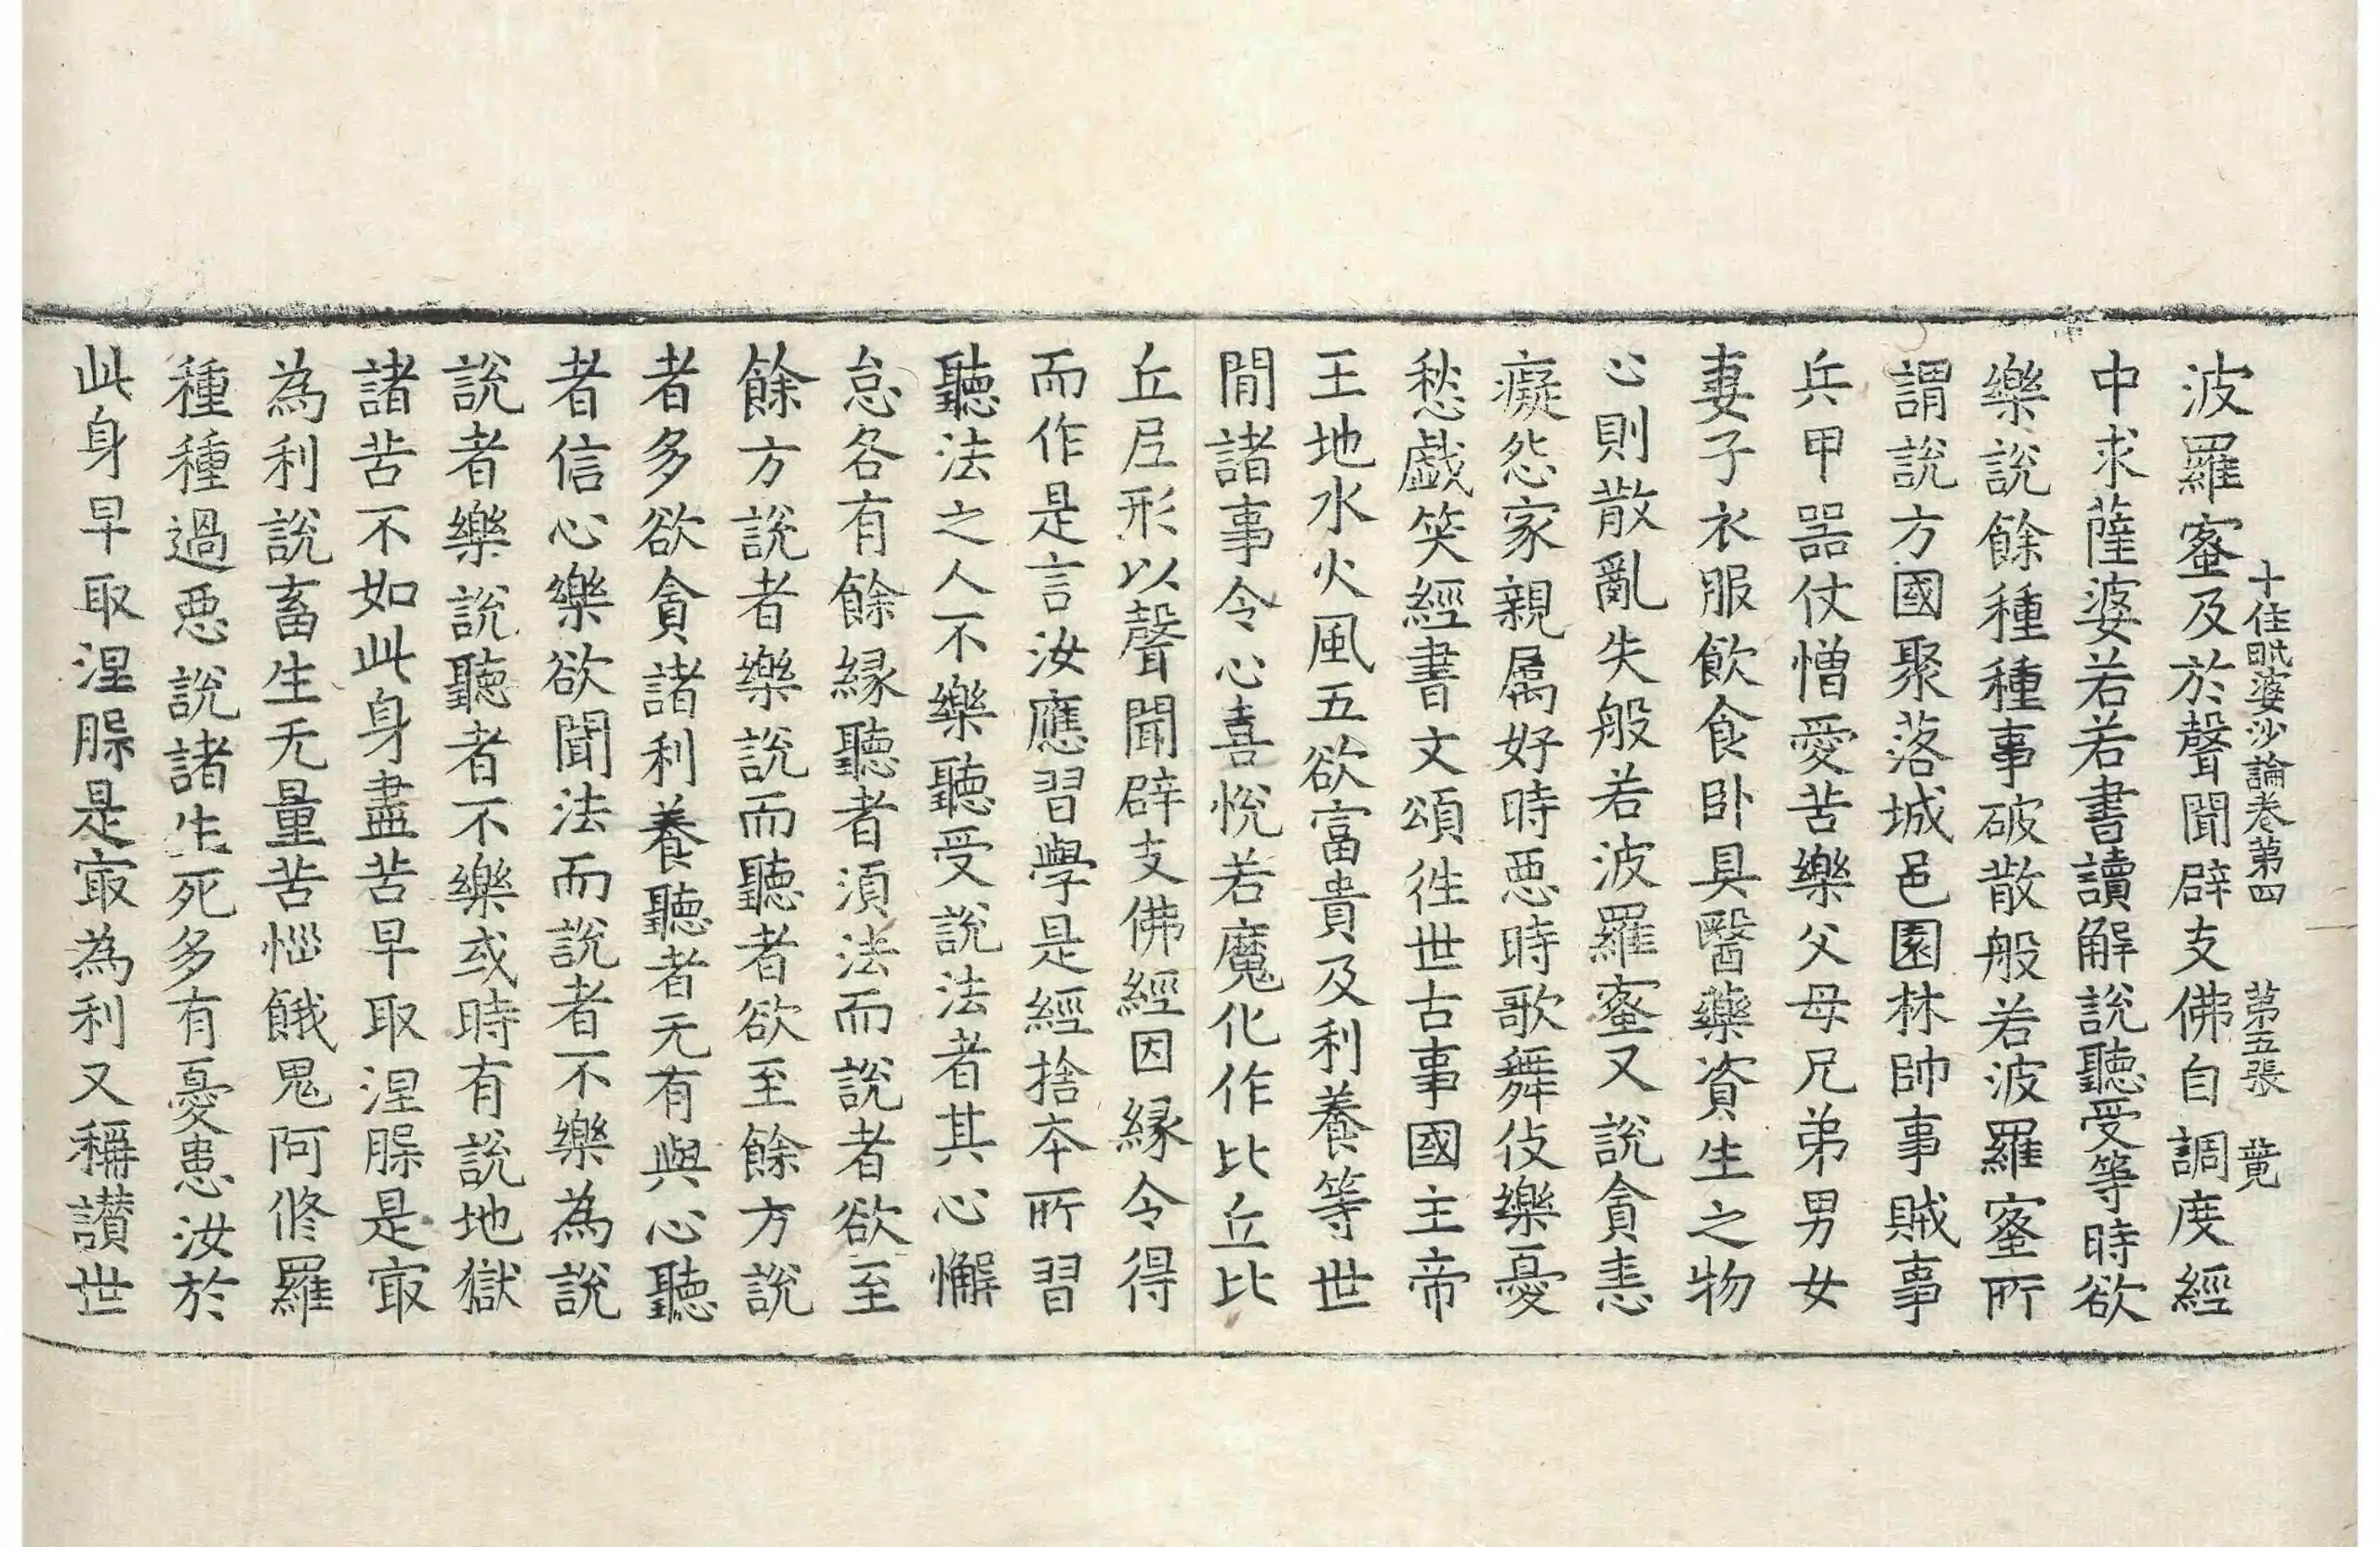 十住毗婆沙論卷苐四　苐五張　萛
波羅蜜及於聲聞辟支佛自調度經
中求薩婆若若書讀解說聽受等時欲
樂說餘種種事破散般若波羅蜜所
謂說方國聚落城邑園林帥事賊事
兵甲器仗憎愛苦樂父母兄弟男女
妻子衣服飲食卧具醫藥資生之物
心則散亂失般若波羅蜜又說貪恚
癡怨家親屬好時惡時歌舞伎樂憂
愁戲笑經書文頌徃世古事國主帝
王地水火風五欲富貴及利養等世
閒諸事令心喜悅若魔化作比丘比
丘尼形以聲聞辟支佛經因緣令得
而作是言汝應習學是經捨本所習
聽法之人不樂聽受說法者其心懈
怠各有餘緣聽者須法而說者欲至
餘方說者樂說而聽者欲至餘方說
者多欲貪諸利養聽者无有與心聽
者信心樂欲聞法而說者不樂為說
說者樂說聽者不樂或時有說地獄
諸苦不如此身盡苦早取涅槃是㝡
為利說畜生无量苦惱餓鬼阿修羅
種種過惡說諸生死多有憂患汝於
此身早取涅槃是㝡為利又稱讃世